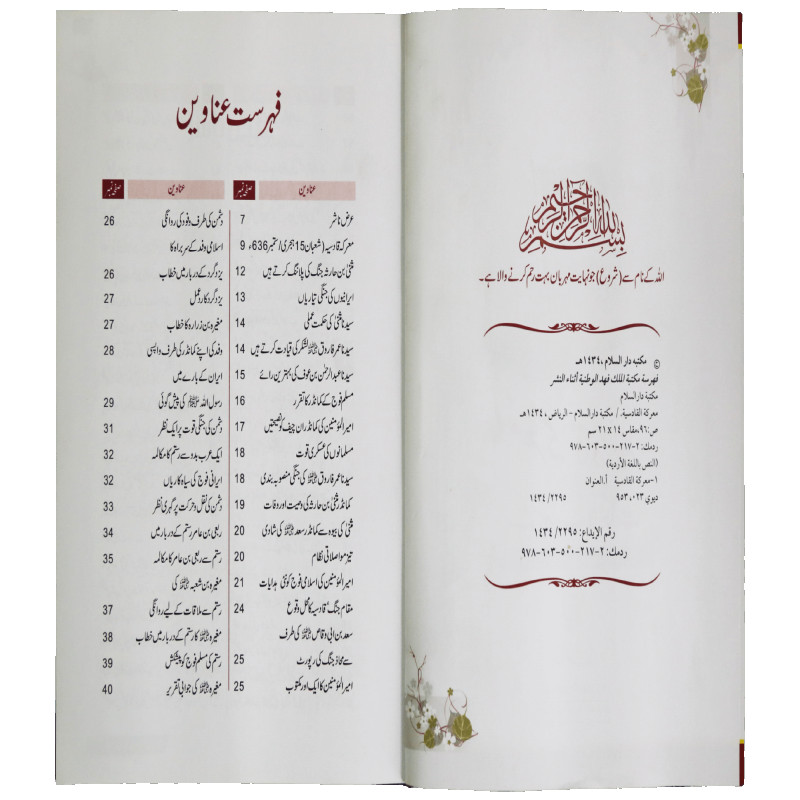 بسم الله الرحمن الرحيم
اللہ کے نام سے (شروع) جو نہایت مہربان بہت رحم کرنے والا ہے۔
© مكتبه دار السلام، ١٤٣٤هـ
فهرسة مكتبة الملك فهد الوطنية أثناء النشر
مكتبة دار السلام
معركة القادسية. / مكتبة دار السلام - الرياض، ١٤٣٤هـ
ص: ٩٦، مقاس ١٤ x ٢١ سم
ردمك: ٢-٢١٧-٥٠٠-٦٠٣-٩٧٨
(النص باللغة الأردية)
١-معركة القادسية أ.العنوان
ديوي ٩٥٣،٠٢٣ ١٤٣٤/٢٢٩٥
رقم الإيداع: ١٤٣٤/٢٢٩٥
ردمك: ٢-٢١٧-٥٠٠-٦٠٣-٩٧٨
فہرست عناوین
عناوین صفحہ نمبر
عرض ناشر 7
معرکہ قادسیہ (شعبان 15 ہجری/ستمبر 636ء 9
مثنیٰ بن حارثہ جنگ کی پلاننگ کرتے ہیں 12
ایرانیوں کی جنگی تیاریاں 13
سیدنا مثنیٰ کی حکمت عملی 14
سیدنا عمر فاروق رضی اللہ عنہ لشکر کی قیادت کرتے ہیں 14
سیدنا عبدالرحمٰن بن عوف کی بہترین رائے 15
مسلم فوج کے کمانڈر کا تقرر 16
امیر المؤمنین کی کمانڈر ان چیف کو نصیحتیں 17
مسلمانوں کی عسکری قوت 18
سیدنا عمر فاروق رضی اللہ عنہ کی جنگی منصوبہ بندی 18
کمانڈر مثنیٰ بن حارثہ کی وصیت اور وفات 19
مثنیٰ کی بیوہ سے کمانڈر سعد رضی اللہ عنہ کی شادی 20
تیز مواصلاتی نظام 20
امیر المؤمنین کی اسلامی فوج کو نئی ہدایات 21
مقام جنگ قادسیہ کا محل وقوع 24
سعد بن ابی وقاص رضی اللہ عنہ کی طرف
سے محاذ جنگ کی رپورٹ 25
امیر المؤمنین کا ایک اور مکتوب 25
عناوین صفحہ نمبر
دشمن کی طرف وفود کی روانگی 26
اسلامی وفد کے سربراہ کا
یزدگرد کے دربار میں خطاب 26
یزدگرد کا ردعمل 27
مغیرہ بن زرارہ کا خطاب 27
وفد کی اپنے کمانڈر کی طرف واپسی 28
ایران کے بارے میں
رسول اللہ ﷺ کی پیش گوئی 29
دشمن کی جنگی قوت پر ایک نظر 31
ایک عرب بدو سے رستم کا مکالمہ 32
ایرانی فوج کی سیاہ کاریاں 32
دشمن کی نقل و حرکت پر گہری نظر 33
ربعی بن عامر رستم کے دربار میں 34
رستم سے ربعی بن عامر کا مکالمہ 35
مغیرہ بن شعبہ رضی اللہ عنہ کی
رستم سے ملاقات کے لیے روانگی 37
مغیرہ رضی اللہ عنہ کا رستم کے دربار میں خطاب 38
رستم کی مسلم فوج کو پیشکش 39
مغیرہ رضی اللہ عنہ کی جوابی تقریر 40